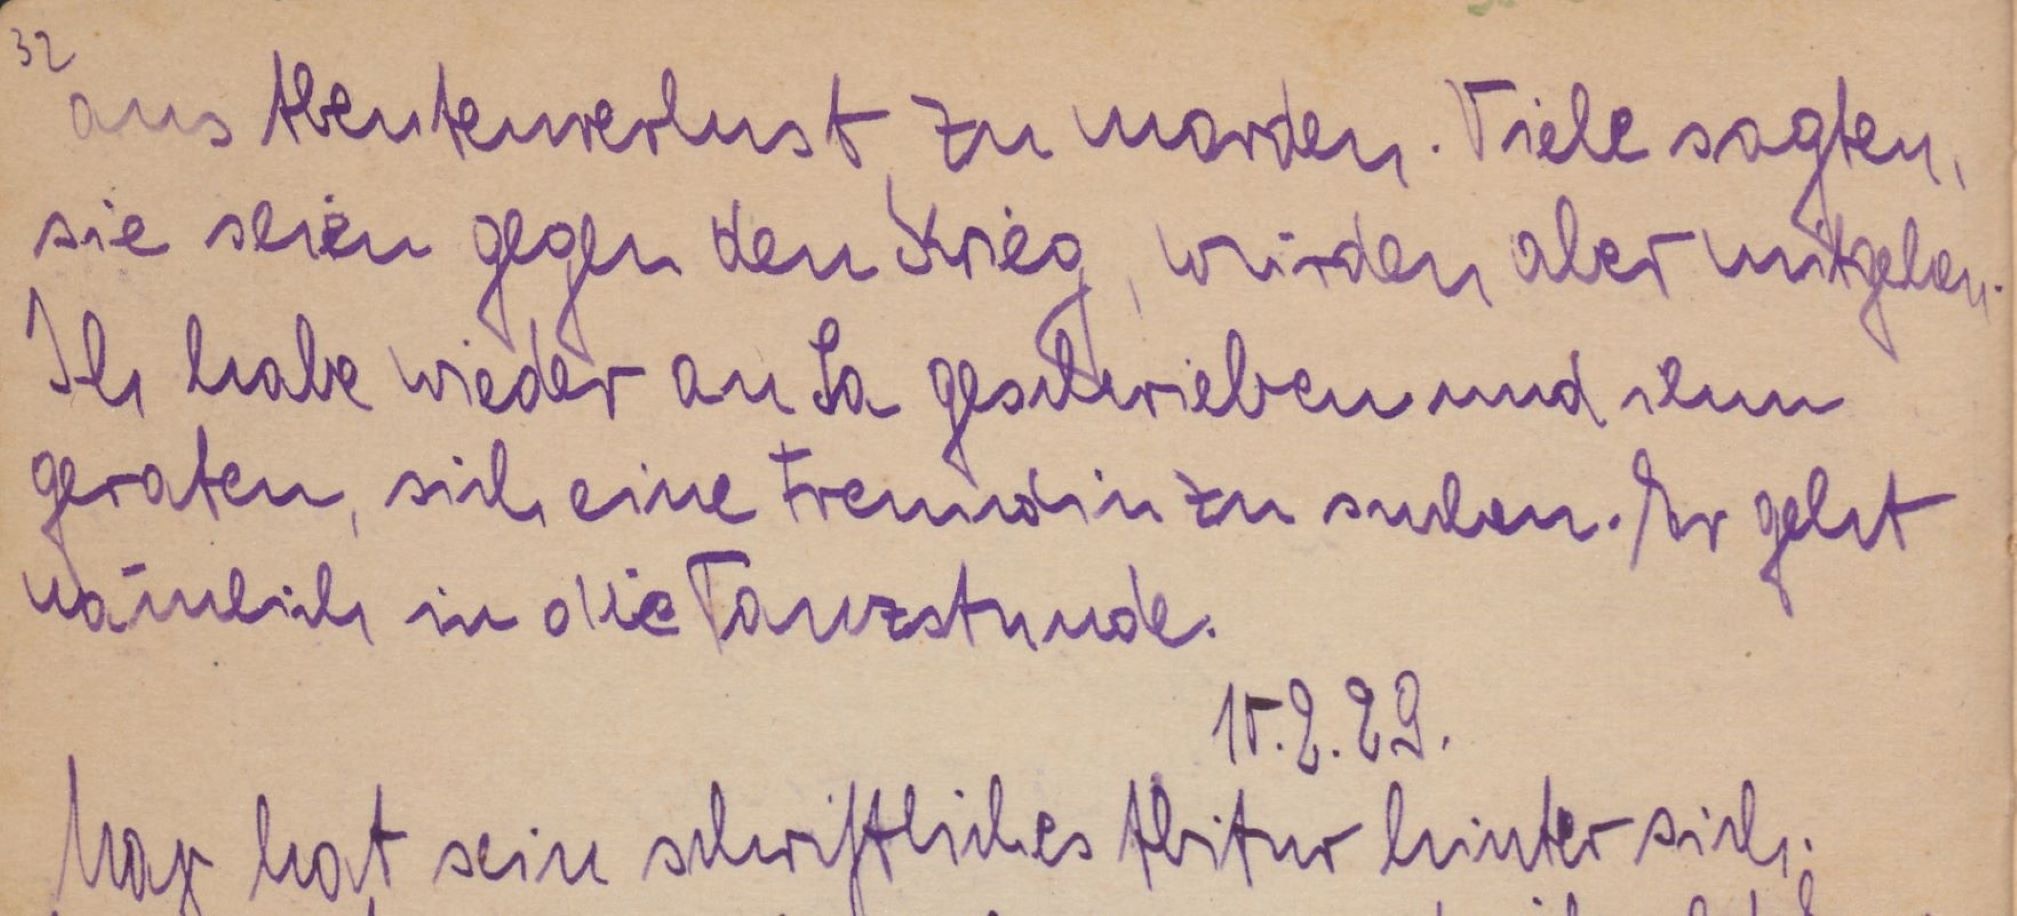 32
aus Abenteurerlust zu morden. Viele sagten,
sie seien gegen den Krieg, würden aber mitgehen.
Ich habe wieder an Sa geschrieben und ihm
geraten, sich eine Freundin zu suchen. Er geht
nämlich in die Tanzstunde.
15.2.29.
Max hat sein schriftliches Abitur hinter sich.